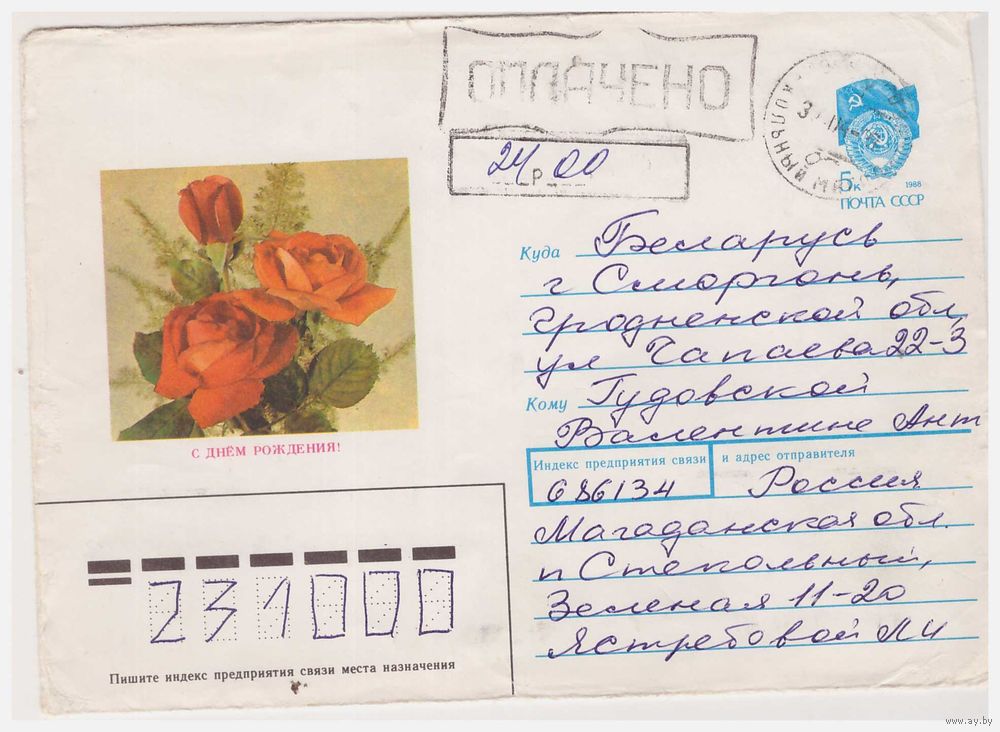 ОПЛАЧЕНО
24 р 00
5 к 1988
ПОЧТА СССР
Куда Беларусь
г Сморгонь,
Гродненской обл,
ул Чапаева 22-3
Кому Гудовской
Валентине Ант
Индекс предприятия связи и адрес отправителя
686134 Россия
Магаданская обл.
п Стекольный,
Зеленая 11-20
Ястребовой Л И
С ДНЁМ РОЖДЕНИЯ!
231000
Пишите индекс предприятия связи места назначения
www.ay.by